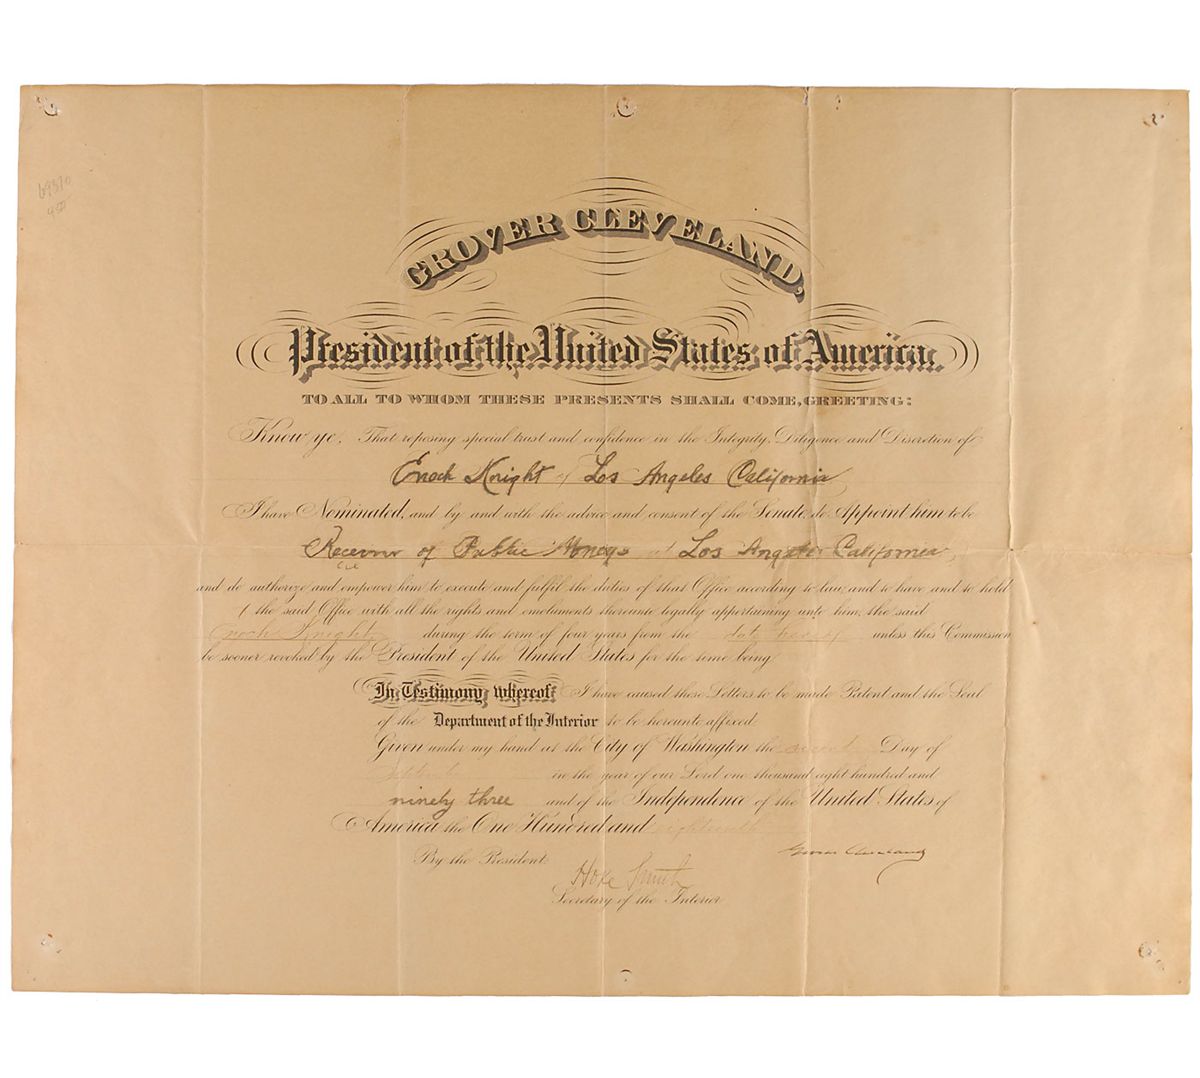 69370
GROVER CLEVELAND,
President of the United States of America.
TO ALL TO WHOM THESE PRESENTS SHALL COME, GREETING:
Know ye, That reposing special trust and confidence in the Integrity, Diligence and Discretion of
Enoch Knight of Los Angeles California
I have Nominated, and by and with the advice and consent of the Senate, do Appoint him to be
Receiver of Public Moneys at Los Angeles California,
and do authorize and empower him to execute and fulfil the duties of that Office according to law, and to have and to hold
the said Office with all the rights and emoluments thereunto legally appertaining unto him, the said
Enoch Knight during the term of four years from the date hereof unless this Commission
be sooner revoked by the President of the United States for the time being.
In Testimony whereof I have caused these Letters to be made Patent and the Seal
of the Department of the Interior to be hereunto affixed.
Given under my hand at the City of Washington the second Day of
September in the year of our Lord one thousand eight hundred and
ninety three and of the Independence of the United States of
America the One Hundred and eighteenth
Grover Cleveland
By the President
Hoke Smith
Secretary of the Interior